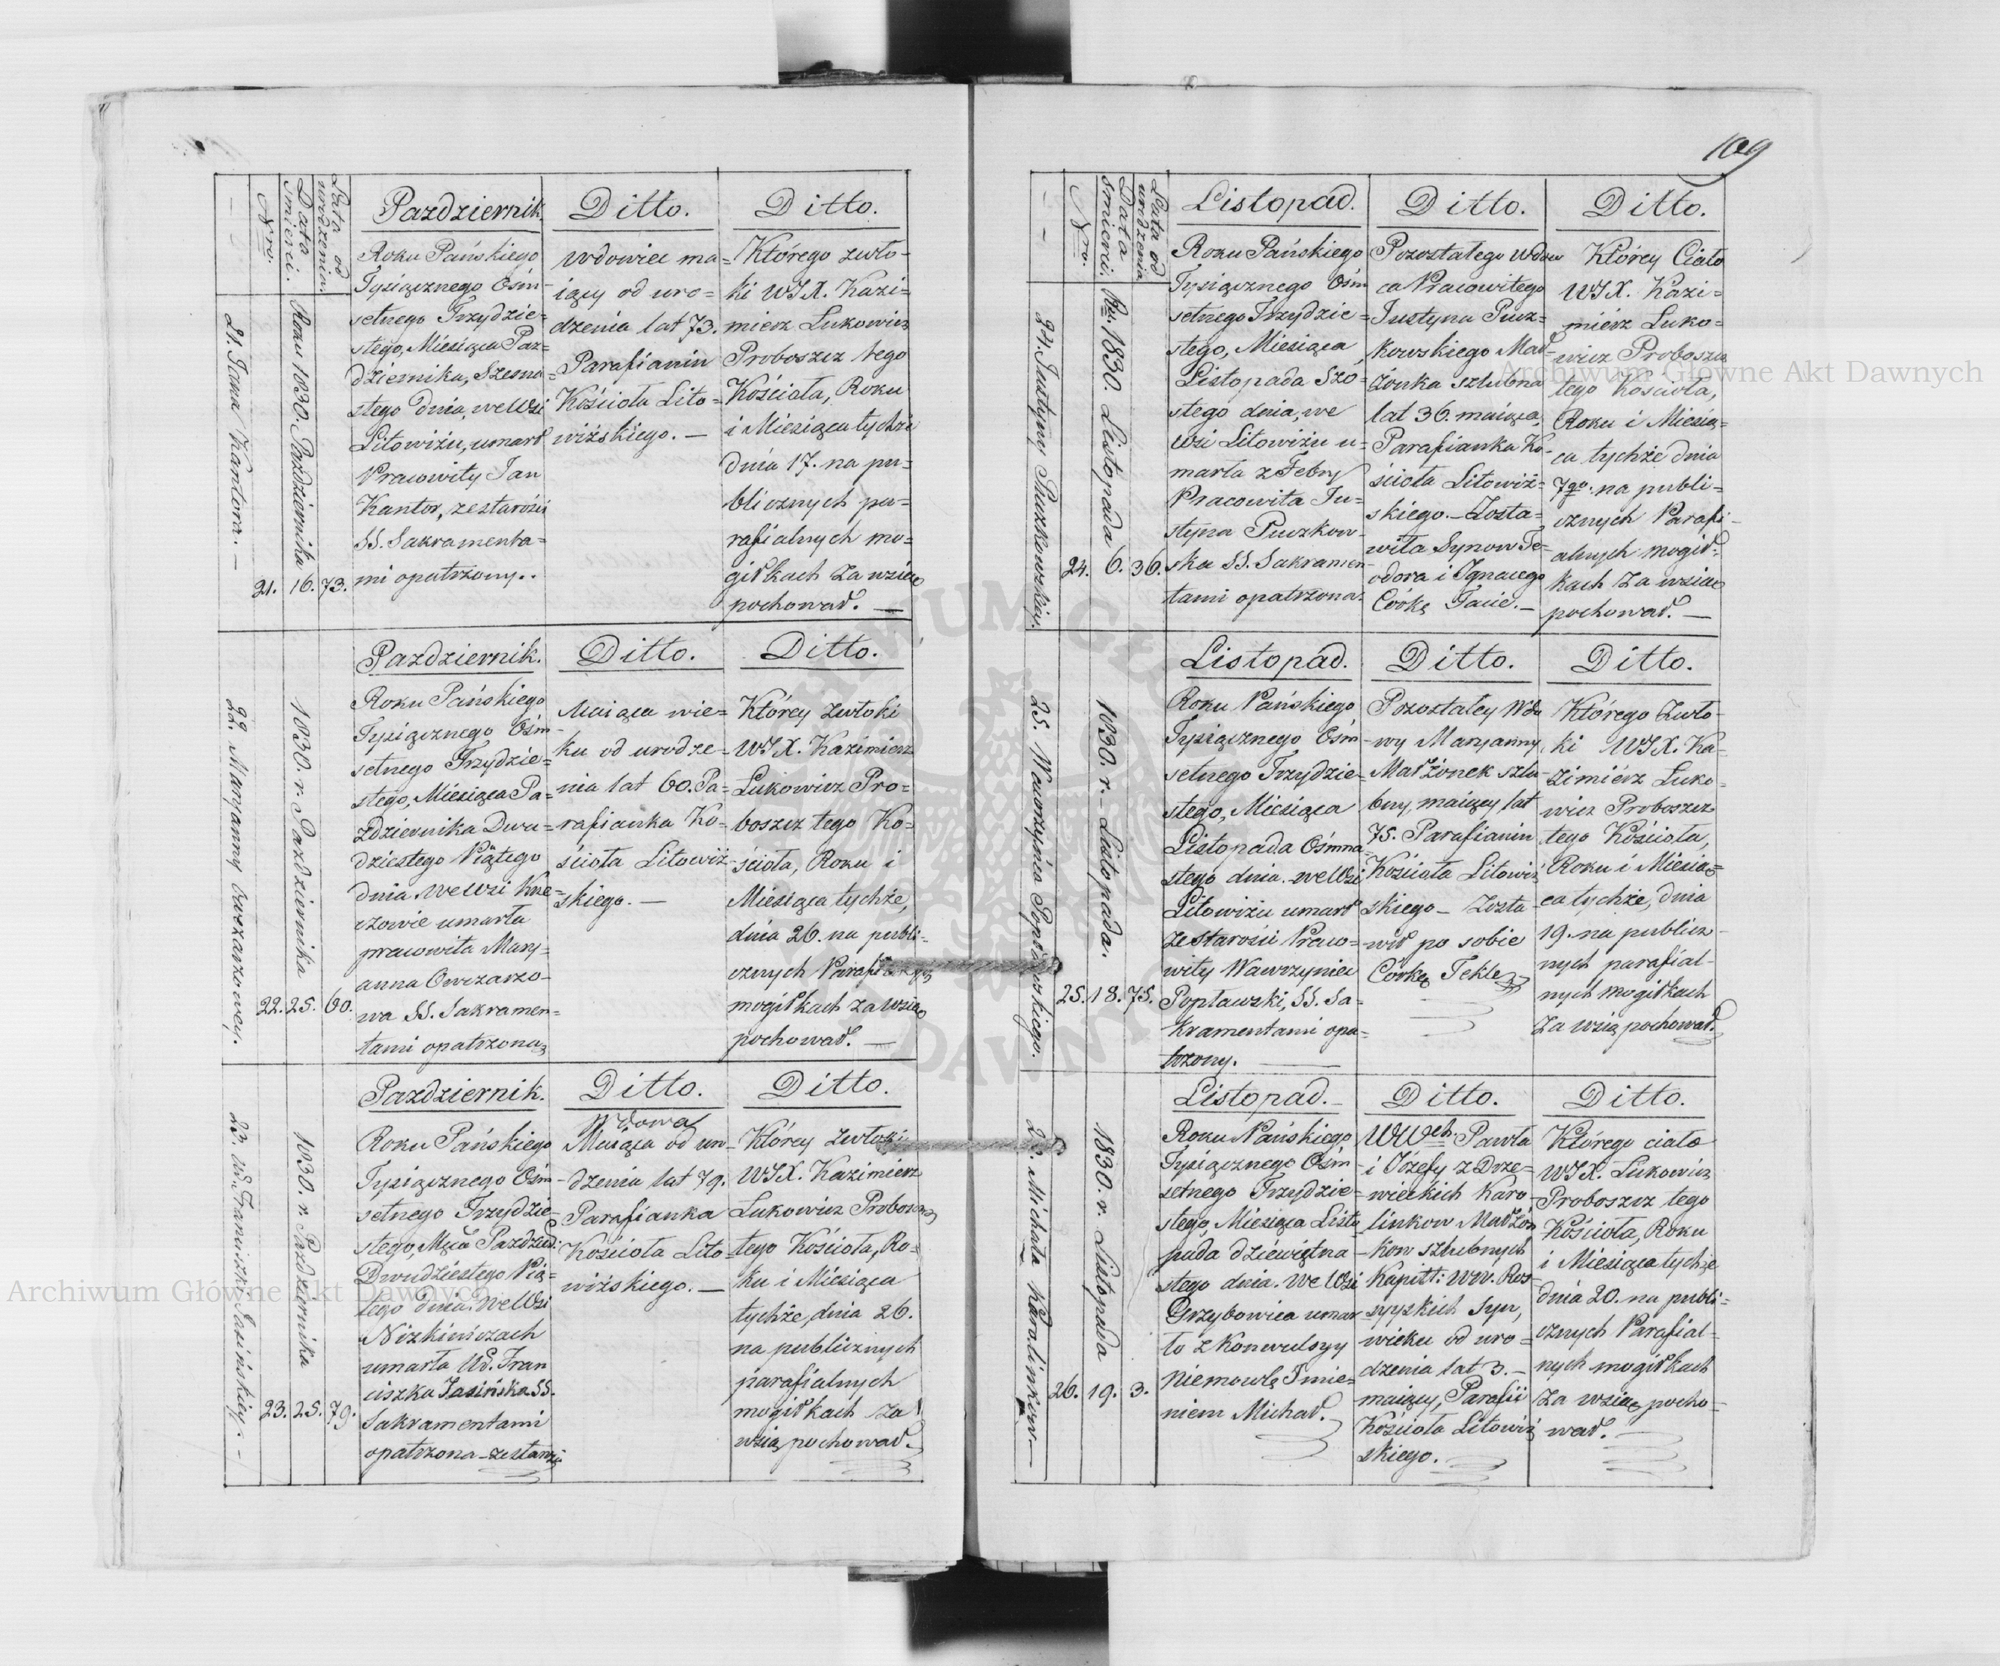 109
Nro.
Data śmierci.
Lata od urodzenia.
Pazdziernik
Ditto.
Ditto.
21. Jana Kantora. —
Roku 1830. Pazdziernika
21.
16.
73.
Roku Pańskiego
Tysiącznego Ośm-
setnego Trzydzie-
stego, Miesiąca Paz-
dziernika, Szesna-
stego dnia, we Wsi
Litowiżu, umarł
Pracowity Jan
Kantor, ze starości
SS. Sakramenta-
mi opatrzony..
wdowiec ma-
iący od uro-
dzenia lat 73.
Parafianin
Kościoła Lito-
wiżskiego. —
Którego zwło-
ki WJX. Kazi-
mierz Lukowicz
Proboszcz tego
Kościoła, Roku
i Miesiąca tychże
dnia 17. na pu-
blicznych pa-
rafialnych mo-
giłkach Zawzięc
pochował. —
Pazdziernik.
Ditto.
Ditto.
22. Maryanny Owczarzowey.
1830. r. Pazdziernika
22.
25.
60.
Roku Pańskiego
Tysiącznego Ośm
setnego Trzydzie-
stego, Miesiąca Pa-
zdziernika Dwu-
dziestego Piątego
dnia. we Wsi Kre-
czowie umarła
pracowita Mary-
anna Owczarzo-
wa SS. Sakramen-
tami opatrzona
Maiąca wie-
ku od urodze-
nia lat 60. Pa-
rafianka Ko-
ścioła Litowiż-
skiego. —
Którey zwłoki
WJX. Kazimierz
Lukowicz Pro-
boszcz tego Ko-
ścioła, Roku i
Miesiąca tychże,
dnia 26. na publi-
cznych Parafialnych
mogiłkach Zawzięc
pochował. —
Pazdziernik.
Ditto.
Ditto.
23. Ur. Franciszki Jasińskiey. —
1830. r. Pazdziernika
23.
25.
79.
Roku Pańskiego
Tysiącznego Ośm
setnego Trzydzie-
stego, Mca Pazdzier:
Dwudziestego Pią-
tego dnia. we Wsi
Nizkiniczach
umarła Ur. Fran
ciszka Jasińska SS.
Sakramentami
opatrzona ze starości
Wdowa
Maiąca od uro-
dzenia lat 79.
Parafianka
Kościoła Lito-
wiżskiego. —
Którey zwłoki
WJX. Kazimierz
Lukowicz Proboszcz
tego Kościoła, Ro-
ku i Miesiąca
tychże, dnia 26.
na publicznych
parafialnych
mogiłkach Za
wzią pochował.
Nro.
Data śmierci.
Lata od urodzenia.
Listopad.
Ditto.
Ditto.
24. Justyny Puzkowskiey.
Ru. 1830. Listopada
24.
6.
36.
Roku Pańskiego
Tysiącznego Ośm
setnego Trzydzie-
stego, Miesiąca
Listopada Szo-
stego dnia, we
Wsi Litowiżu u-
marła z Febry
Pracowita Ju-
styna Puzkow-
ska SS. Sakramen
tami opatrzona.
Pozostałego Wdow
ca Pracowitego
Justyna Puz-
kowskiego Mał-
żonka szlubna
lat 36. maiąca,
Parafianka Ko-
ścioła Litowiż-
skiego. — Zosta-
wiła Synow Te-
odora i Ignacego
Córkę Tacię. —
Którey Ciało
WJX. Kazi-
mierz Luko-
wicz Proboszcz
tego Kościoła,
Roku i Miesią-
ca tychże dnia
7go. na publi-
cznych Parafi-
alnych mogił-
kach Zawzięc
pochował. —
Listopad.
Ditto.
Ditto.
25. Wawrzyńca Popławskiego.
1830. r. — Listopada.
25.
18.
75.
Roku Pańskiego
Tysiącznego Ośm-
setnego Trzydzie-
stego, Miesiąca
Listopada Ośmna
stego dnia. we Wsi
Litowiżu umarł
ze starości Praco-
wity Wawrzyniec
Popławski, SS. Sa-
kramentami opa-
trzony. —
Pozostałey Wdo
wy Maryanny
Małżonek szlu-
bny, maiący lat
75. Parafianin
Kościoła Litowiż
skiego — Zosta
wił po sobie
Córkę Teklę
Którego Zwło-
ki WJX. Ka-
zimierz Luko-
wicz Proboszcz
tego Kościoła,
Roku i Miesią-
ca tychże, dnia
19. na publicz-
nych parafial-
nych mogiłkach
Za wzią pochował.
Listopad.
Ditto.
Ditto.
26. Michała Karalinkow —
1830. r. Listopada
26.
19.
3.
Roku Pańskiego
Tysiącznego Ośm
setnego Trzydzie-
stego, Miesiąca Listo
pada dziewiętna-
stego dnia. we Wsi
Grzybowica umar
ło z Konwulsyy
Niemowle Imie-
niem Michał.
WWch. Pawła
i Józefy z Drze-
wieckich Karo-
linkow Małżon
kow szlubnych
Kapitt: WW. Ros-
syyskich Syn,
wieku od uro-
dzenia lat 3. —
maiący, Parafii
Kościoła Litowiż
skiego.
Którego ciało
WJX. Lukowicz
Proboszcz tego
Kościoła, Roku
i Miesiąca tychże
dnia 20. na publi-
cznych Parafial-
nych mogiłkach
Za wzięc pocho-
wał.
Archiwum Główne Akt Dawnych
Archiwum Główne Akt Dawnych